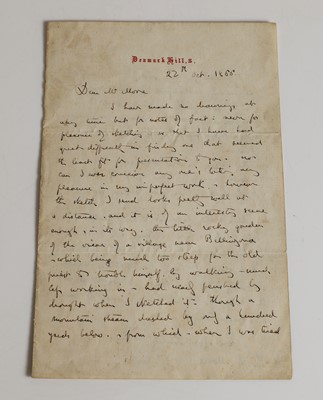 Denmark Hill, S.
22nd Oct. 1855
Dear Mr Moore
I have made no drawings at
any time but for notes of fact - never for
pleasure of sketching - so that I have had
great difficulty in finding one that seemed
the least fit for presentation to you. nor
can I ever conceive any one's taking any
pleasure in my imperfect work - however
the sketch I send looks pretty well at
a distance. and it is of an interesting scene
enough, in its way. the little rocky garden
of the vicar of a village near Bellinzona
- which being much too steep for the old
priest to trouble himself by walking - much
less working in - had nearly perished by
drought when I sketched it - though a
mountain stream dashed by only a hundred
yards below. & from which - when I was tired